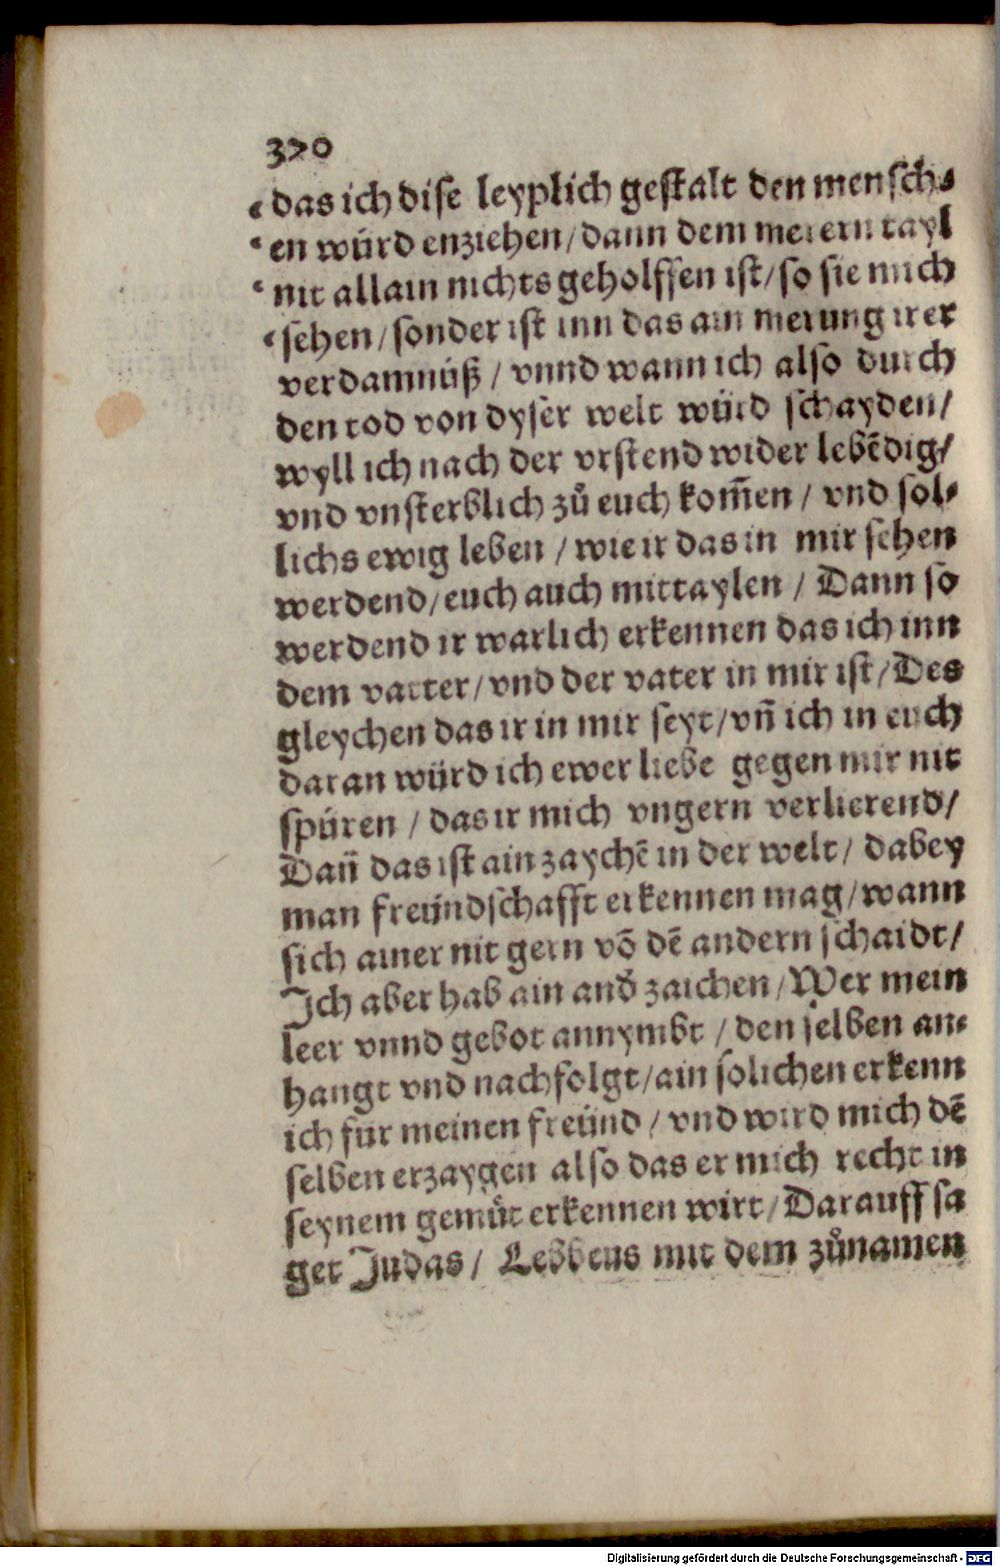 370
das ich dise leyplich gestalt den mensch⸗
en würd enziehen/ dann dem merern tayl
nit allain nichts geholffen ist/ so sie mich
sehen/ sonder ist inn das ain merung irer
verdamnüß/ vnnd wann ich also durch
den tod von dyser welt würd schayden/
wyll ich nach der vrstend wider lebēdig/
vnd vnsterblich zů euch kom̄en/ vnd sol⸗
lichs ewig leben/ wie ir das in mir sehen
werdend/ euch auch mittaylen/ Dann so
werdend ir warlich erkennen das ich inn
dem vatter/ vnd der vater in mir ist/ Des
gleychen das ir in mir seyt/ vn̄ ich in euch
daran würd ich ewer liebe gegen mir nit
spüren/ das ir mich vngern verlierend/
Dan̄ das ist ain zaychē in der welt/ dabey
man freündschafft erkennen mag/ wann
sich ainer nit gern vō dē andern schaidt/
Ich aber hab ain and̕ zaichen/ Wer mein
leer vnnd gebot annymbt/ den selben an⸗
hangt vnd nachfolgt/ ain solichen erkenn
ich für meinen freünd/ vnd wird mich dē
selben erzaygen also das er mich recht in
seynem gemüt erkennen wirt/ Darauff sa
get Judas/ Lebbeus mit dem zůnamen
Digitalisierung gefördert durch die Deutsche Forschungsgemeinschaft - DFG